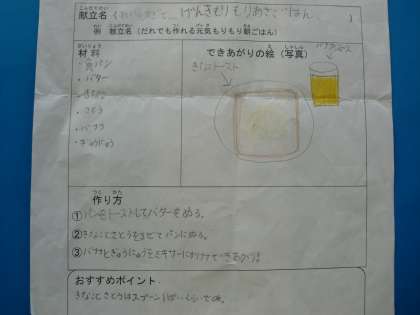 献立名 げんきもりもりあさごはん
例 献立名(だれでも作れる元気もりもり朝ごはん)
材料
できあがりの絵(写真)
・食パン
・バター
・きなこ
・さとう
・バナナ
・ぎゅうにゅう
きなこトースト
バナナジュース
作り方
①パンをトーストしてバターをぬる。
②きなことさとうをまぜてパンにぬる。
③バナナとぎゅうにゅうをミキサーに
おすすめポイント
きなことさとうはスプーン1ぱいくらいで